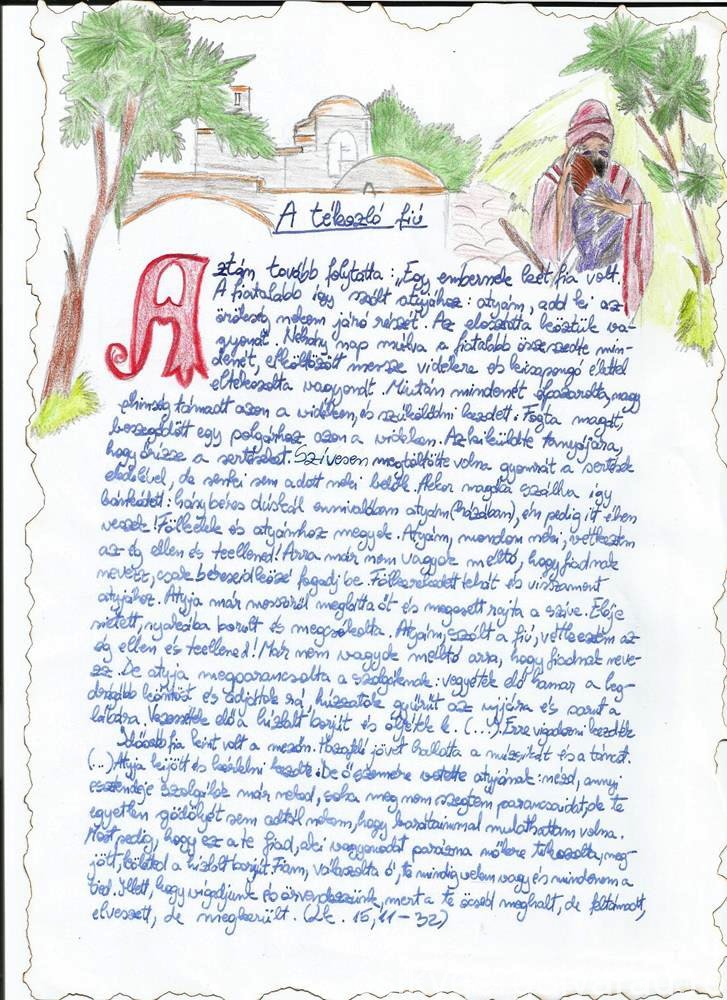 A tékozló fiú
Aztán tovább folytatta: „Egy embernek két fia volt.
A fiatalabb így szólt atyjához: atyám, add ki az
örökség nekem járó részét. Az elosztotta köztük va-
gyonát. Néhány nap múlva a fiatalabb összeszedte min-
denét, elköltözött messze vidékre és kicsapongó élettel
eltékozolta vagyonát. Miután mindenét elpazarolta, nagy
éhínség támadt azon a vidéken, és szűkölködni kezdett. Fogta magát,
beszegődött egy polgárhoz azon a vidéken. Az kiküldte tanyájára,
hogy őrizze a sertéseket. Szívesen megtöltötte volna gyomrát a sertések
eledelével, de senki sem adott neki belőle. Ekkor magába szállva így
bánkódott: hány béres dúskál ennivalóban atyám (házában), én pedig itt éhen
veszek! Fölkelek és atyámhoz megyek. Atyám, mondom neki, vétkeztem
az ég ellen és teellened! Arra már nem vagyok méltó, hogy fiadnak
nevezz, csak béreseid közé fogadj be. Fölkerekedett tehát és visszament
atyjához. Atyja már messziről meglátta őt és megesett rajta a szíve. Eléje
sietett, nyakába borult és megcsókolta. Atyám, szólt a fiú, vétkeztem az
ég ellen és teellened! Már nem vagyok méltó arra, hogy fiadnak neve-
zz. De atyja megparancsolta a szolgáknak: vegyétek elő hamar a leg-
drágább köntöst és adjátok rá, húzzatok gyűrűt az ujjára és sarut a
lábára. Vezessétek elő a hízlalt borjút és öljétek le. (...). Erre vigadozni kezdtek
Idősebb fia kint volt a mezőn. Hazafelé jövet hallotta a muzsikát és a táncot.
(...) Atyja kijött és kérlelni kezdte. De ő szemére vetette atyjának: nézd, annyi
esztendeje szolgálok már neked, soha meg nem szegtem parancsaidat, de te
egyetlen gödölyét sem adtál nekem, hogy barátaimmal mulathattam volna.
Most pedig, hogy ez a te fiad, aki vagyonodat parázna nőkre tékozolta, meg-
jött, levágtad a hízlalt borjút. Fiam, válaszolta ő, te mindig velem vagy és mindenem a
tied. Illett, hogy vigadjunk és örvendezzünk, mert a te öcséd meghalt, de feltámadt,
elveszett, de megkerült. (Lk. 15,11-32)